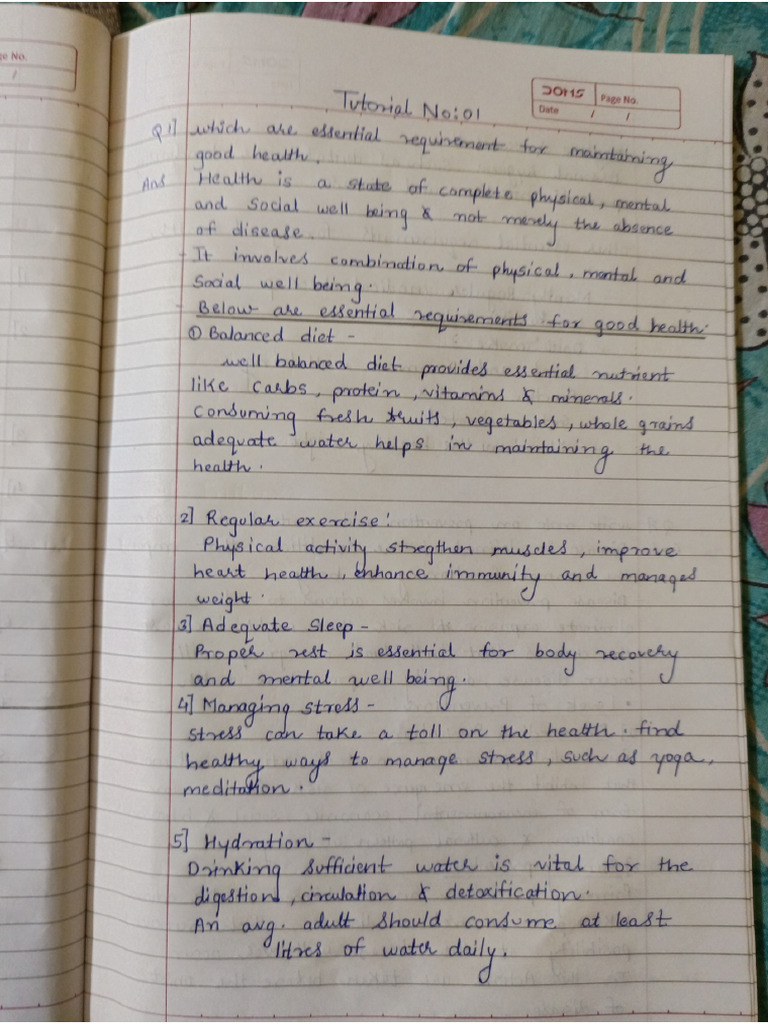 ge No.
/
DOMS
Page No.
Date / /
Tutorial No:01
Q.1] which are essential requirement for maintaining
good health.
Ans Health is a state of complete physical, mental
and Social well being & not merely the absence
of disease.
- It involves combination of physical, mental and
Social well being.
- Below are essential requirements for good health.
① Balanced diet -
well balanced diet provides essential nutrient
like carbs, protein, vitamins & minerals.
Consuming fresh fruits, vegetables, whole grains
adequate water helps in maintaining the
health.
2] Regular exercise:
Physical activity stregthen muscles, improve
heart health, enhance immunity and manages
weight.
3] Adequate Sleep -
Proper rest is essential for body recovery
and mental well being.
4] Managing stress -
Stress can take a toll on the health. find
healthy ways to manage stress, such as yoga,
meditation.
5] Hydration -
Drinking sufficient water is vital for the
digestion, circulation & detoxification.
An avg. adult should consume at least
litres of water daily.